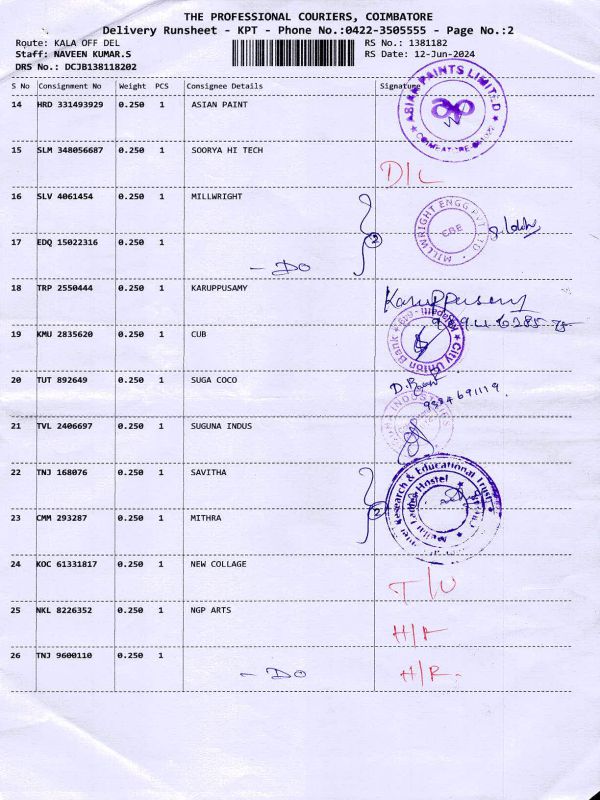 THE PROFESSIONAL COURIERS, COIMBATORE
Delivery Runsheet - KPT - Phone No.:0422-3505555 - Page No.:2
Route: KALA OFF DEL RS No.: 1381182
Staff: NAVEEN KUMAR.S RS Date: 12-Jun-2024
DRS No.: DCJB138118202
S No Consignment No Weight PCS Consignee Details Signature
14 HRD 331493929 0.250 1 ASIAN PAINT
ASIAN PAINTS LIMITED
ap
15 SLM 348056687 0.250 1 SOORYA HI TECH D/L
16 SLV 4061454 0.250 1 MILLWRIGHT
2
MILLWRIGHT ENGG PVT LTD
CBE
17 EDQ 15022316 0.250 1 - DO
18 TRP 2550444 0.250 1 KARUPPUSAMY Karuppusamy
19 KMU 2835620 0.250 1 CUB
City Union Bank
20 TUT 892649 0.250 1 SUGA COCO
21 TVL 2406697 0.250 1 SUGUNA INDUS
INDUSTRIES
22 TNJ 168076 0.250 1 SAVITHA
2
Research & Educational Trust
Ladies Hostel
23 CMM 293287 0.250 1 MITHRA
24 KOC 61331817 0.250 1 NEW COLLAGE T/U
25 NKL 8226352 0.250 1 NGP ARTS
26 TNJ 9600110 0.250 1 - DO H/R.